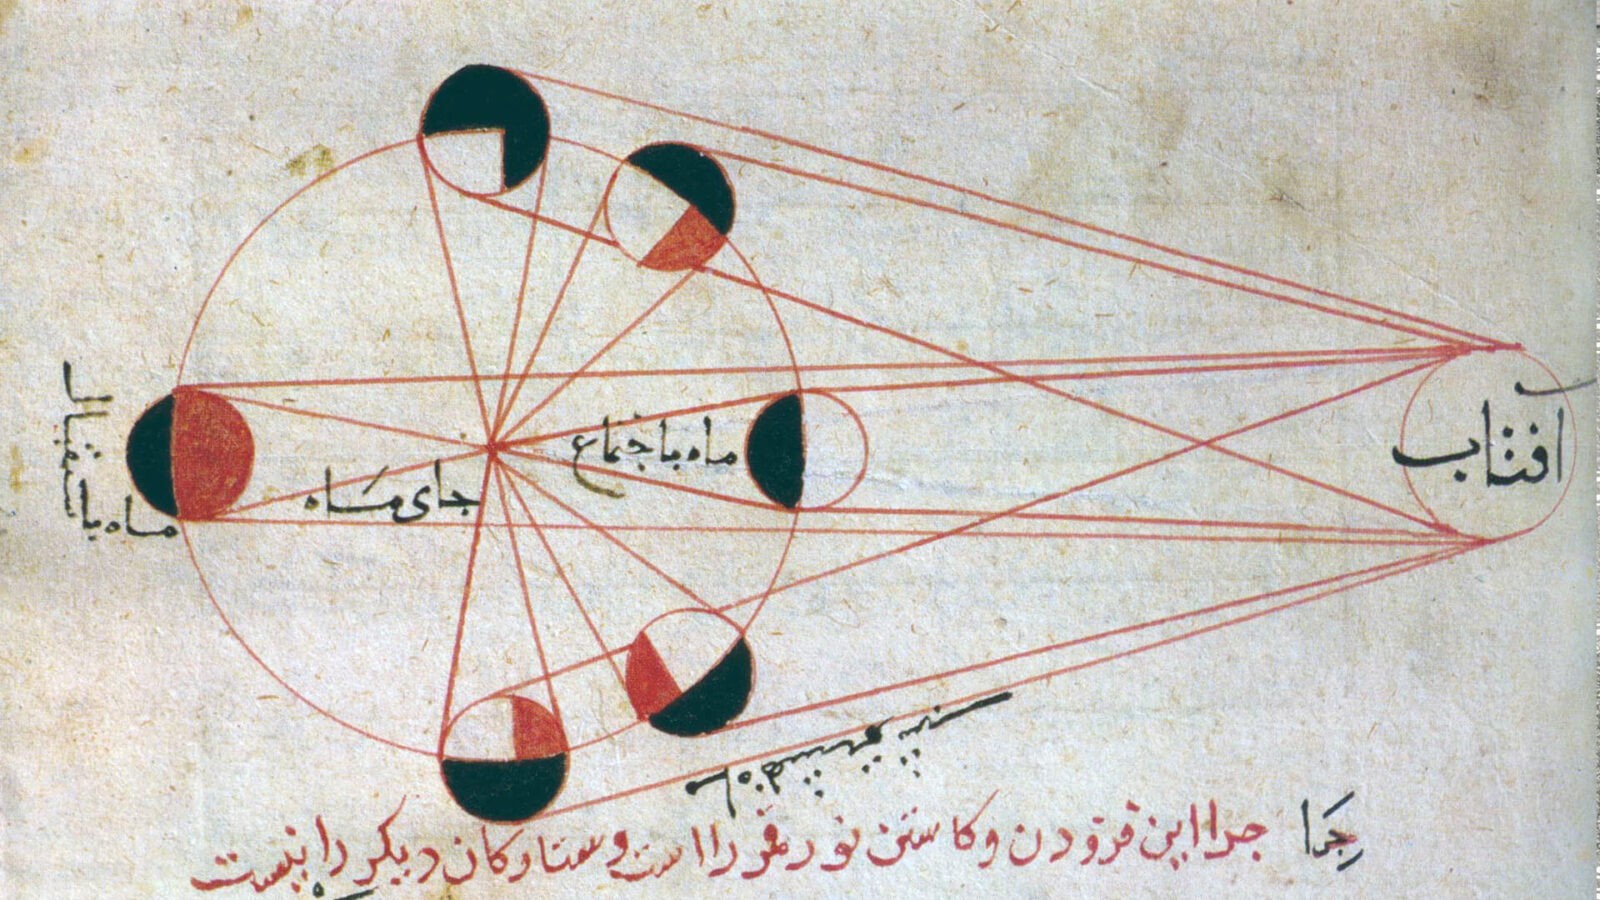 افتاب
ماه باجتماع
جای ماه
ماه باستقبال
چرا
چرا این فزودن وکاستن نور قمر را است وستارکان دیکر را نیست